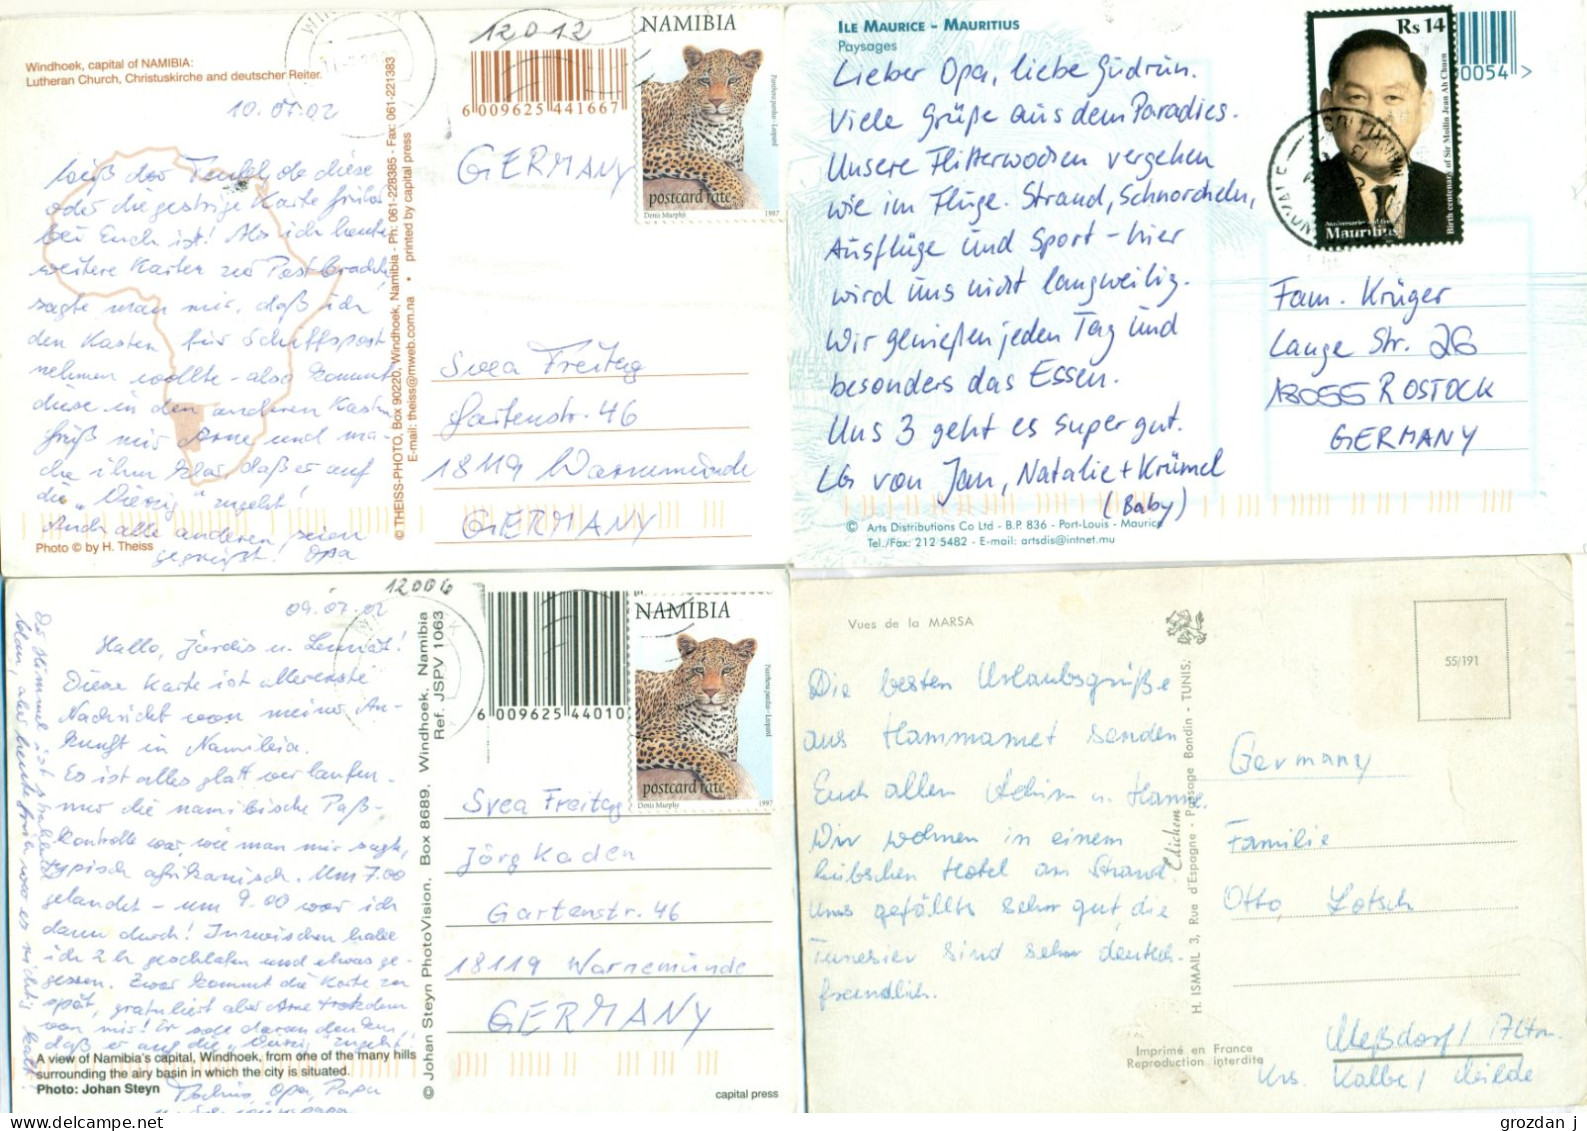 Windhoek, capital of NAMIBIA:
Lutheran Church, Christuskirche and deutscher Reiter.
10.07.02
Weiß der Teufel, ob diese
oder die gestrige Karte früher
bei Euch ist! Als ich heute
weitere Karten zur Post brachte,
sagte man mir, daß ich
den Kasten für Schiffspost
nehmen wollte - also kommt
diese in den anderen Kasten.
Grüß mir Arne und ma-
che ihm klar, daß er auf
die "Vierzig" zugeht!
Auch alle anderen seien
gegrüßt! Opa
Photo © by H. Theiss
© THEISS-PHOTO, Box 90220, Windhoek, Namibia - Ph: 061-228385 - Fax: 061-221383
E-mail: theiss@mweb.com.na • printed by capital press
12012
6 009625 441667
NAMIBIA
Panthera pardus - Leopard
postcard rate
Denis Murphy 1997
GERMANY
Svea Freitag
Gartenstr. 46
18119 Warnemünde
GERMANY
ILE MAURICE - MAURITIUS
Paysages
Lieber Opa, liebe Gudrun.
Viele Grüße aus dem Paradies.
Unsere Flitterwochen vergehen
wie im Fluge. Strand, Schnorcheln,
Ausflüge und Sport - hier
wird uns nicht langweilig.
Wir genießen jeden Tag und
besonders das Essen.
Uns 3 geht es super gut.
LG von Jan, Natalie + Krümel
(Baby)
© Arts Distributions Co Ltd - B.P. 836 - Port-Louis - Maurice
Tel./Fax: 212 5482 - E-mail: artsdis@intnet.mu
Rs 14
Birth centenary of Sir Moilin Jean Ah Chuen
Mauritius
0054 >
Fam. Krüger
Lange Str. 26
18055 ROSTOCK
GERMANY
09.07.02
Hallo, Jördis u. Lennát!
Diese Karte ist allererste
Nachricht von meiner An-
kunft in Namibia.
Es ist alles glatt verlaufen -
nur die namibische Paß-
kontrolle war, wie man mir sagte,
typisch afrikanisch. Um 7.00
gelandet - um 9.00 war ich
dann durch! Inzwischen habe
ich 2 h geschlafen und etwas ge-
gessen. Zwar kommt die Karte zu
spät, gratuliert aber Arne trotzdem
von mir! Er soll daran denken,
daß er auf die "Vierzig" zugeht!
Opa, Papa
Der Himmel ist strahlend
A view of Namibia's capital, Windhoek, from one of the many hills
surrounding the airy basin in which the city is situated.
Photo: Johan Steyn
© Johan Steyn PhotoVision, Box 8689, Windhoek, Namibia
Ref. JSPV 1063
12006
6 009625 44010
NAMIBIA
Panthera pardus - Leopard
postcard rate
Denis Murphy 1997
Svea Freitag
Jörg Kaden
Gartenstr. 46
18119 Warnemünde
GERMANY
capital press
Vues de la MARSA
Die besten Urlaubsgrüße
aus Hammamet senden
Euch allen Achim u. Hanne.
Wir wohnen in einem
hübschen Hotel am Strand.
Uns gefällts sehr gut, die
Tunesier sind sehr deutsch-
freundlich.
H. ISMAIL 3, Rue d'Espagne - Passage Bondin - TUNIS.
Imprimé en France
Reproduction interdite
55/191
Germany
Familie
Otto Lotsch
Meßdorf / Altm.
Krs. Kalbe / Milde
grozdan j